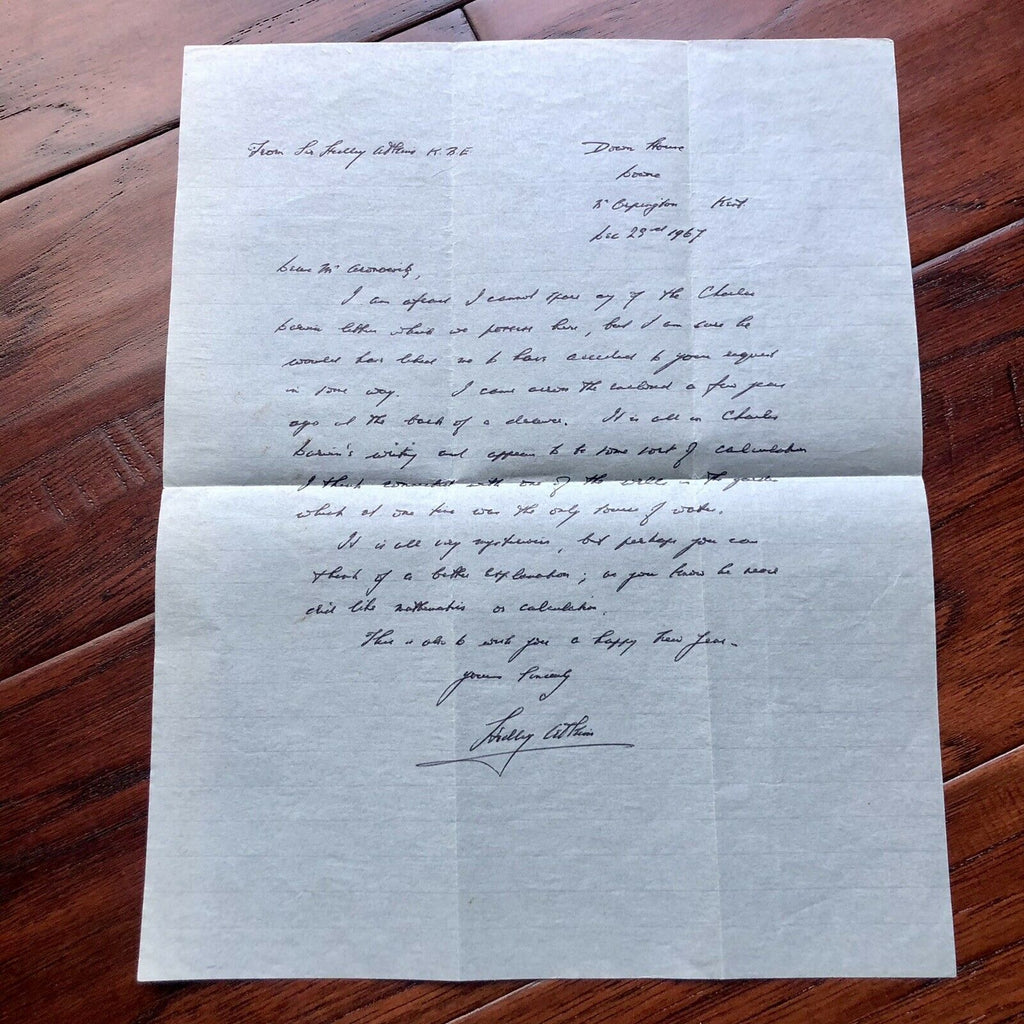 From Sir Hedley Atkins K.B.E
Down House
Downe
Nr Orpington Kent.
Dec 23rd 1967
Dear Mr Aronowitz,
I am afraid I cannot spare any of the Charles
Darwin letters which we possess here, but I am sure he
would have liked me to have acceded to your request
in some way. I came across the enclosed a few years
ago at the back of a drawer. It is all in Charles
Darwin's writing and appears to be some sort of calculation
I think connected with one of the wells in the garden
which at one time was the only source of water.
It is all very mysterious, but perhaps you can
think of a better explanation; as you know he never
did like mathematics or calculation.
This is also to wish you a happy New Year.
Yours sincerely
Hedley Atkins